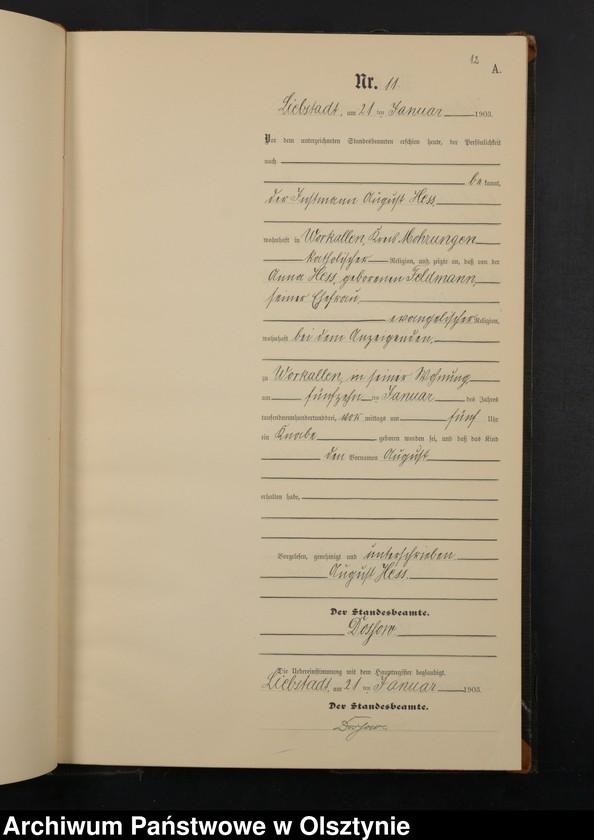 12
A.
Nr. 11.
Liebstadt, am 21 ten Januar 1903.
Vor dem unterzeichneten Standesbeamten erschien heute, der Persönlichkeit
nach
be kannt,
der Instmann August Hess
wohnhaft in Workallen, Kreis Mohrungen
katholischer Religion, und zeigte an, daß von der
Anna Hess, geborenen Feldmann,
seiner Ehefrau
evangelischer Religion,
wohnhaft bei dem Anzeigenden,
zu Workallen, in seiner Wohnung
am fünfzehn ten Januar des Jahres
tausendneunhundertunddrei, vor mittags um fünf Uhr
ein Knabe geboren worden sei, und daß das Kind
den Vornamen August
erhalten habe,
Vorgelesen, genehmigt und unterschrieben
August Hess.
Der Standesbeamte.
Die Uebereinstimmung mit dem Hauptregister beglaubigt.
Liebstadt, am 21 ten Januar 1903.
Der Standesbeamte.
Archiwum Państwowe w Olsztynie